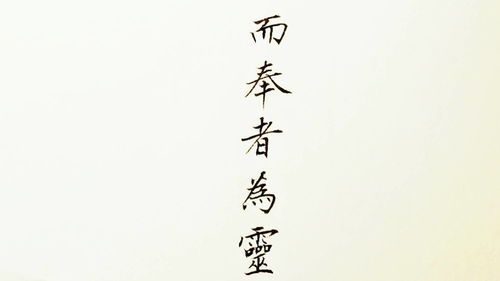 而奉者為靈